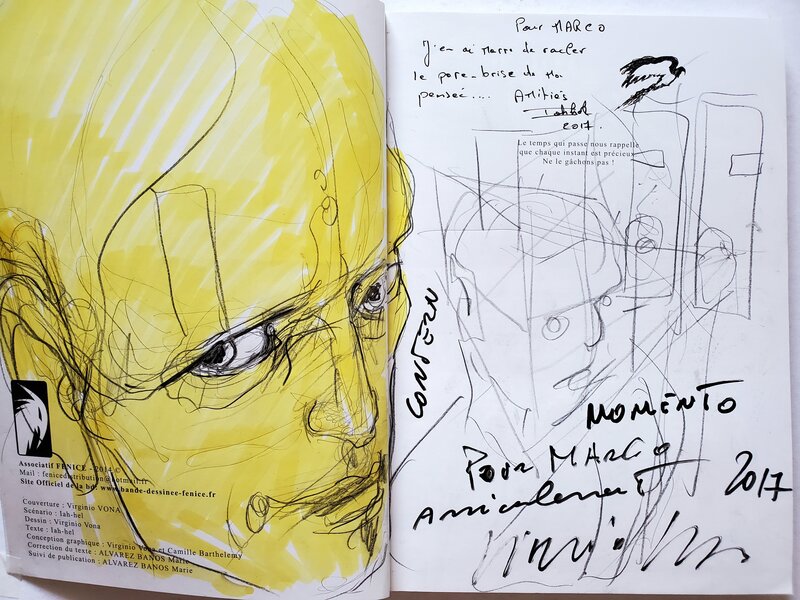 Associatif FENICE - 2014 ©
Mail : fenicedistribution@hotmail.fr
Site Officiel de la bd: www.bande-dessinee-fenice.fr
Couverture : Virginio VONA
Scénario : Iah-hel
Dessin : Virginio Vona
Texte : Iah-hel
Conception graphique : Virginio Vona et Camille Barthelemy
Correction du texte : ALVAREZ BANOS Marie
Suivi de publication : ALVAREZ BANOS Marie
Pour MARCO
J'en ai marre de racler
le pare-brise de ma
pensée.... Amitiés
Iahhel
2017.
Le temps qui passe nous rappelle
que chaque instant est précieux
Ne le gâchons pas !
CONTERN
MOMENTO
Pour MARCO
Amicalement 2017